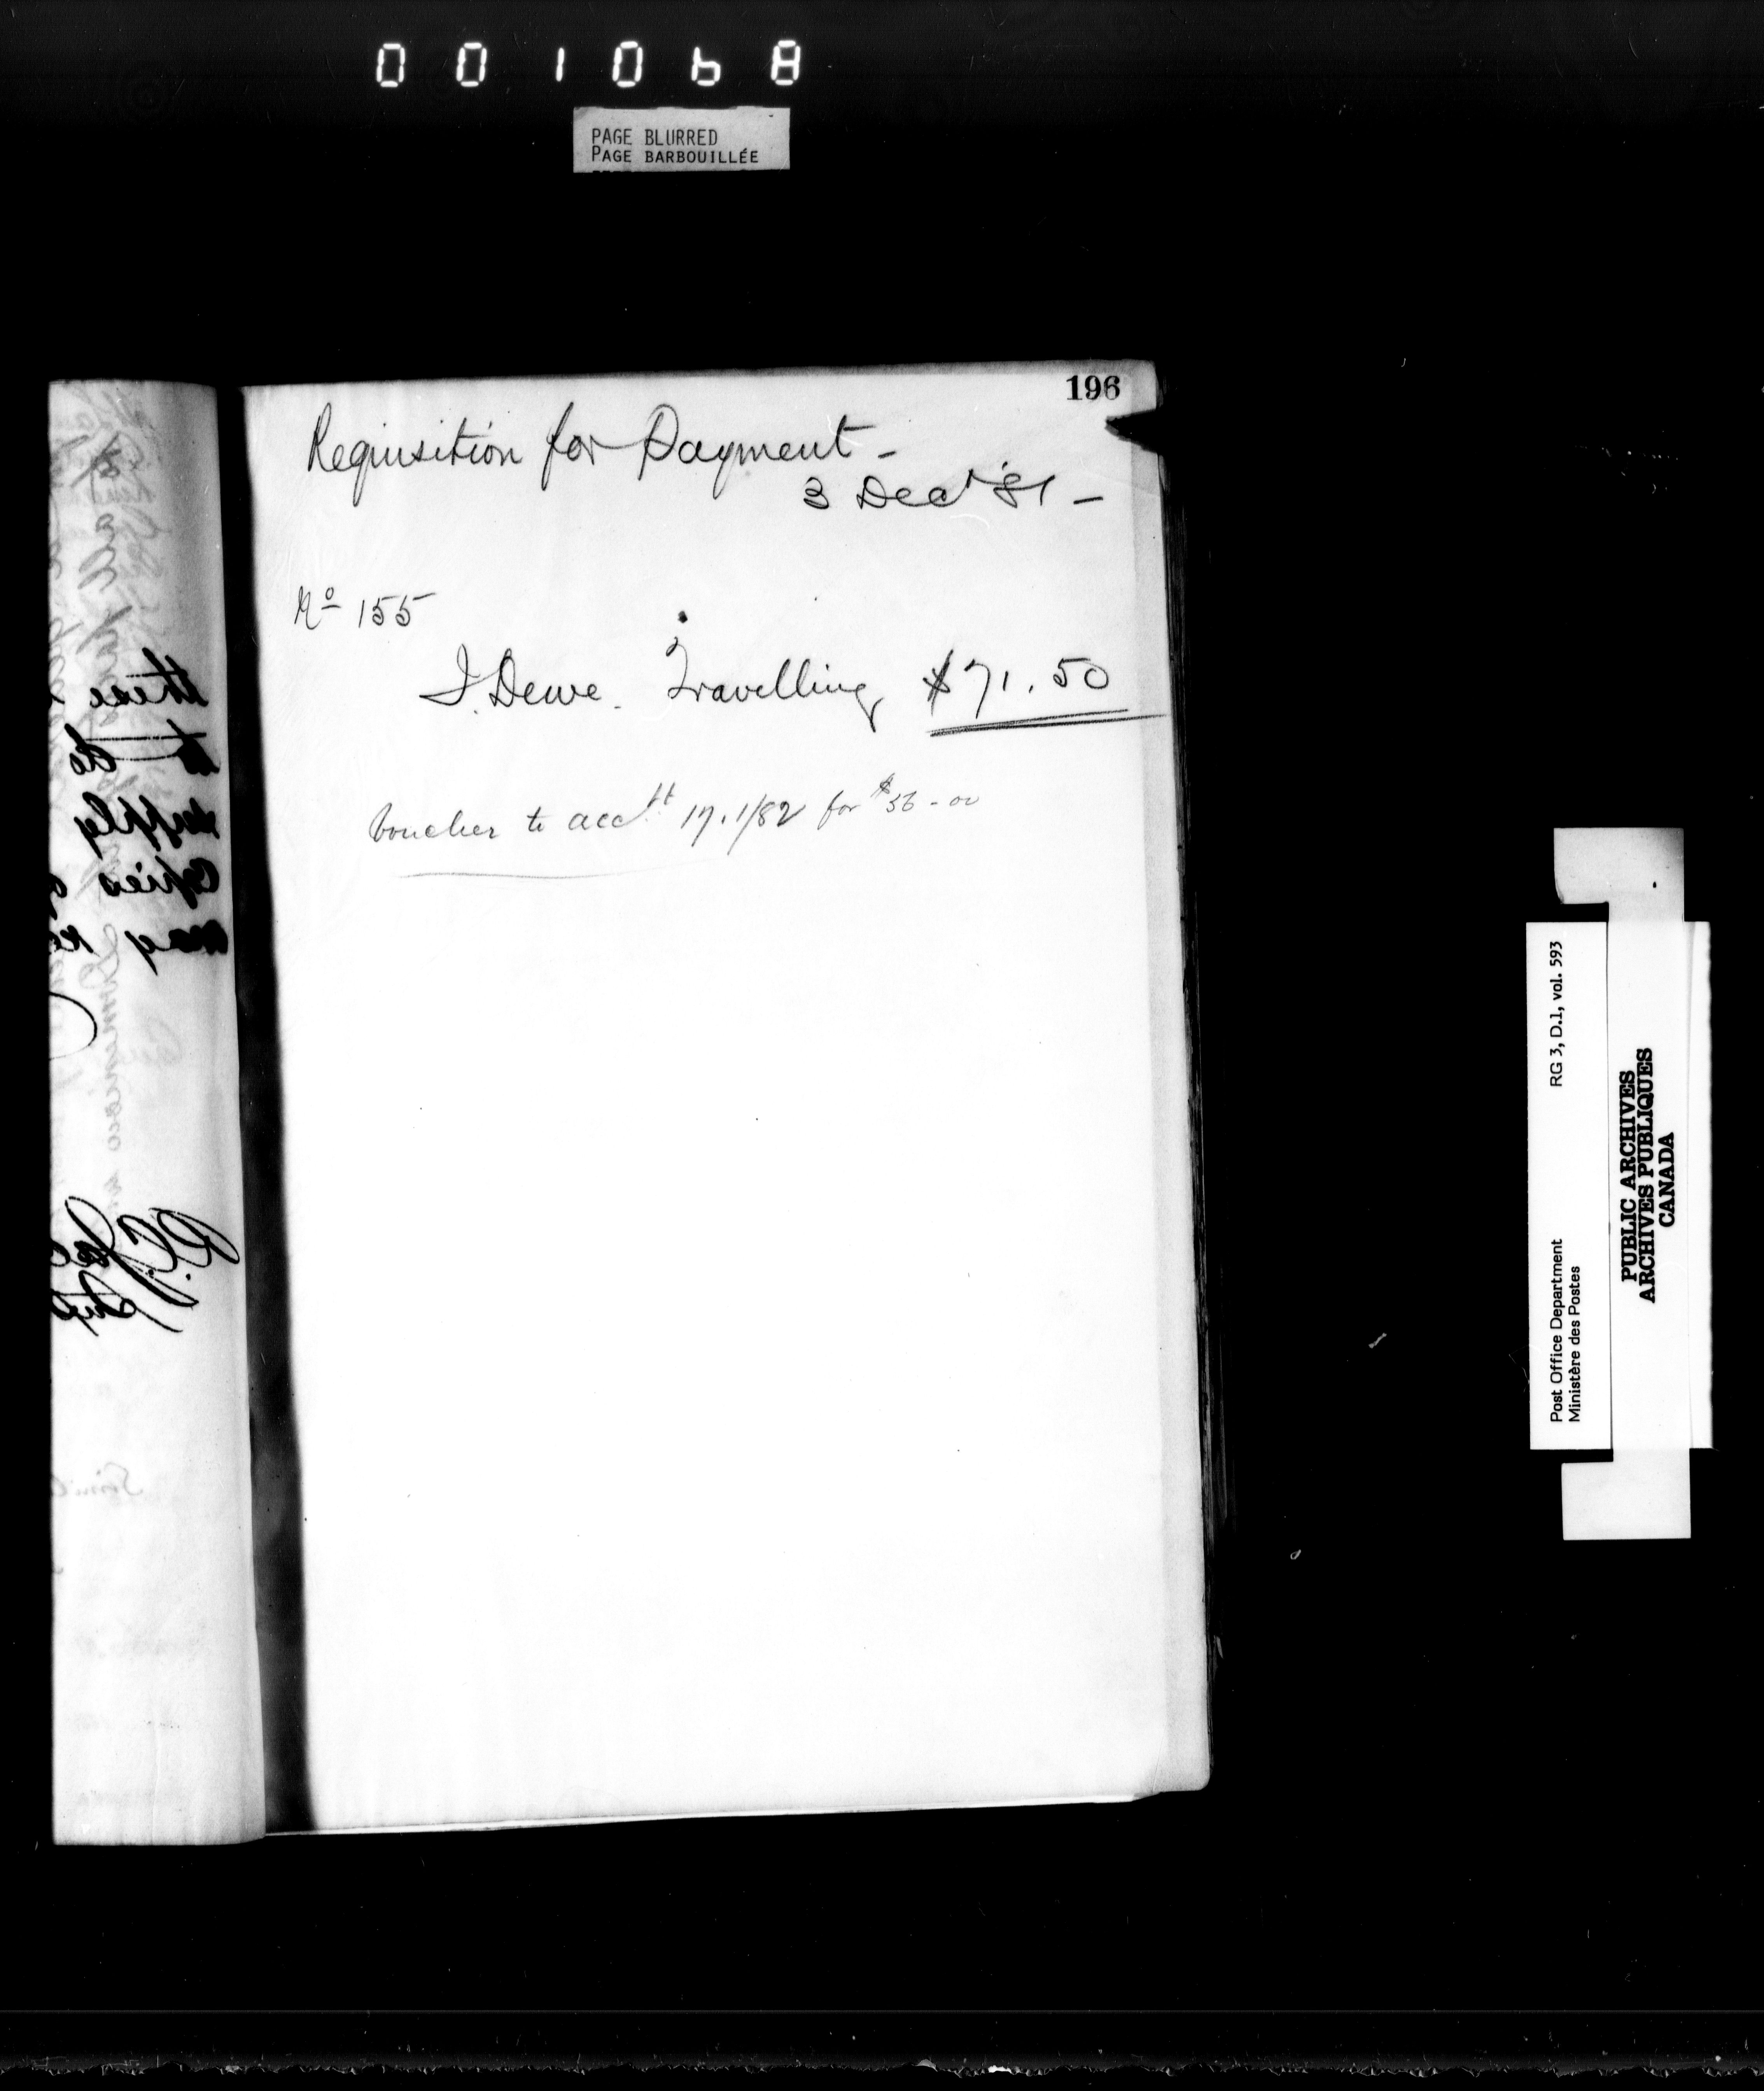 001068
PAGE BLURRED
PAGE BARBOUILLÉE
196
Requisition for Payment -
3 Decr '81 -
No 155
J. Dewe. Travelling $71.50
Voucher to acctt 17.1/82 for $56-00
these
to do
supply
copies
may
RG 3, D.1, vol. 593
Post Office Department
Ministère des Postes
PUBLIC ARCHIVES
ARCHIVES PUBLIQUES
CANADA